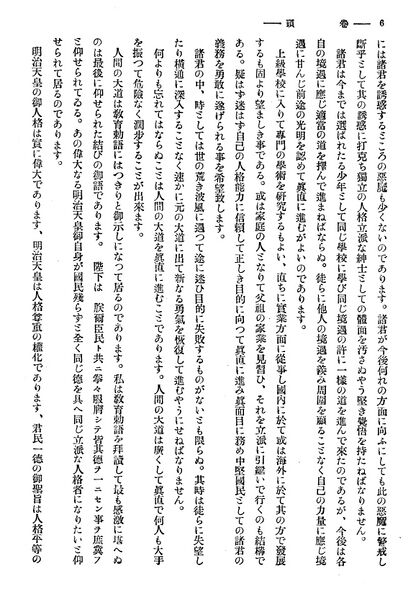 6 — 卷 頭 —
には諸君を誘惑するところの惡魔も少くないのであります。諸君が今後何れの方面に向ふにしても此の惡魔に警戒し
斷乎として其の誘惑に打克ち獨立の人格立派な紳士としての體面を汚さぬやう堅き覺悟を持たねばなりません。
諸君は今までは選ばれたる少年として同じ學校に學び同じ境遇の許に一樣の道を進んで來たのであるが、今後は各
自の境遇に應じ適當の道を擇んで進まねばならぬ。徒らに他人の境遇を羨み周圍を顧ることなく自己の力量に應じ境
遇に甘んじ前途の光明を認めて眞直に進むがよいのであります。
上級學校に入りて專門の學術を硏究するもよい、直ちに實業方面に從事し國內に於て或は海外に於て其の方で發展
するも固より望ましき事である。或は家庭の人となりて父祖の家業を見習ひ、それを立派に引繼いで行くのも結構で
ある。疑はず迷はず自己の人格能力に信賴して正しき目的に向つて眞直に進み眞面目に務め中堅國民としての諸君の
義務を勇敢に遂げられる事を希望致します。
諸君の中、時としては世の荒き波風に遇つて途に迷ひ目的に失敗するものがないとも限らぬ。其時は徒らに失望し
たり橫道に深入することなく速かに元の大道に出て新なる勇氣を恢復して進むやうにせねばなりません。
何よりも忘れてはならぬことは人間の大道を眞直に進むことであります。人間の大道は廣くして眞直で何人も大手
を振つて危險なく濶步することが出來ます。
人間の大道は敎育勅語にはつきりと御示しになつて居るのであります。私は敎育勅語を拜讀して最も感激に堪へぬ
のは最後に仰せられた結びの御語であります。 陛下は 朕爾臣民ト共ニ拳々服膺シテ咸其德ヲ一ニセン事ヲ庶冀フ
と仰せられてゐる。あの偉大なる明治天皇御自身が國民殘らずと全く同じ德を具へ同じ立派な人格者になりたいと仰
せられて居るのであります。
明治天皇の御人格は實に偉大であります、明治天皇は人格尊重の權化であります、君民一德の御聖旨は人格平等の